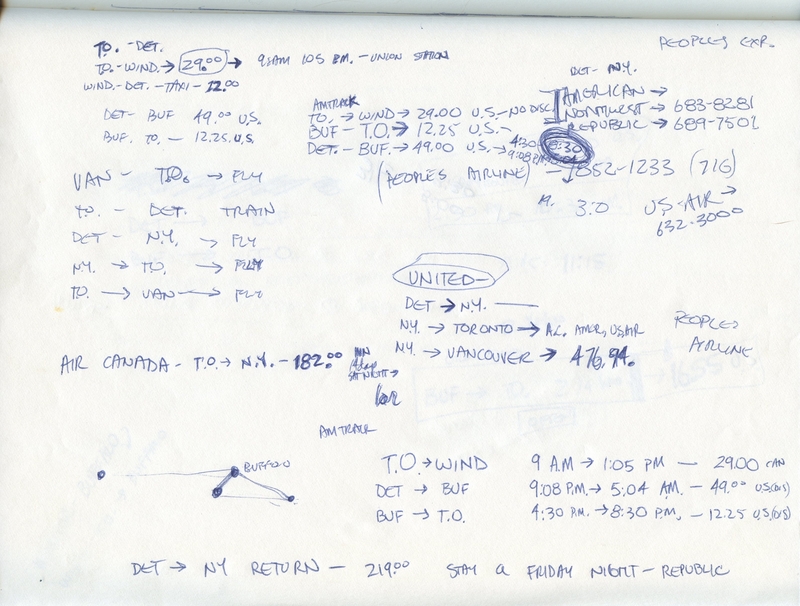 PEOPLES EXP.
TO. - DET.
TO. - WIND. → 29.00 → 9 AM 1:05 P.M. - UNION STATION
WIND. - DET. - TAXI - 12.00
DET - BUF 49.00 U.S.
BUF. TO. - 12.25 U.S.
DET - N.Y.
AMERICAN →
NORTHWEST → 683-8281
REPUBLIC → 689-7502
AMTRACK
TO. → WIND → 29.00 U.S. - NO DISC.
BUF - T.O. → 12.25 U.S. - 4:30 8:30
DET. - BUF. → 49.00 U.S. → 9:08 P.M. 5:04
(PEOPLES AIRLINE) - 1852-1233 (716)
3:0 U.S. AIR →
632-3000
VAN - T.O. → FLY
TO. - DET. TRAIN
DET - N.Y. → FLY
N.Y. → TO. → FLY
TO. → VAN → FLY
UNITED -
DET → N.Y. -
N.Y. → TORONTO → A.C., AMER, US AIR
N.Y. → VANCOUVER → 476.94.
PEOPLES
AIRLINE
AIR CANADA - T.O. → N.Y. - 182.00 MIN
SAT NIGHT →
AMTRACK
BUFFALO
T.O. → WIND 9 AM → 1:05 PM - 29.00 CAN
DET → BUF 9:08 P.M. → 5:04 A.M. - 49.00 U.S.(DIS)
BUF → T.O. 4:30 P.M. → 8:30 P.M. - 12.25 U.S.(DIS)
DET → NY RETURN - 219.00 STAY a FRIDAY NIGHT - REPUBLIC